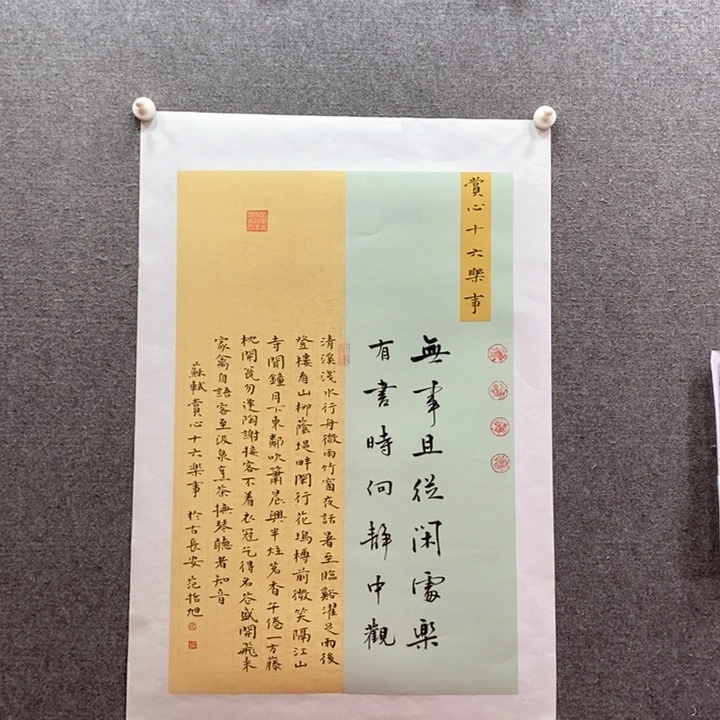 賞心十六樂事
無事且從閑處樂
有書時向靜中觀
清溪淺水行舟微雨竹窗夜話暑至臨谿濯足雨後
登樓看山柳蔭堤畔閑行花塢樽前微笑隔江山
寺聞鐘月下東鄰吹簫晨興半炷茗香午倦一方藤
枕開瓮勿逢陶謝接客不着衣冠乞得名花盛開飛來
家禽自語客至汲泉烹茶撫琴聽者知音
蘇軾賞心十六樂事 於古長安